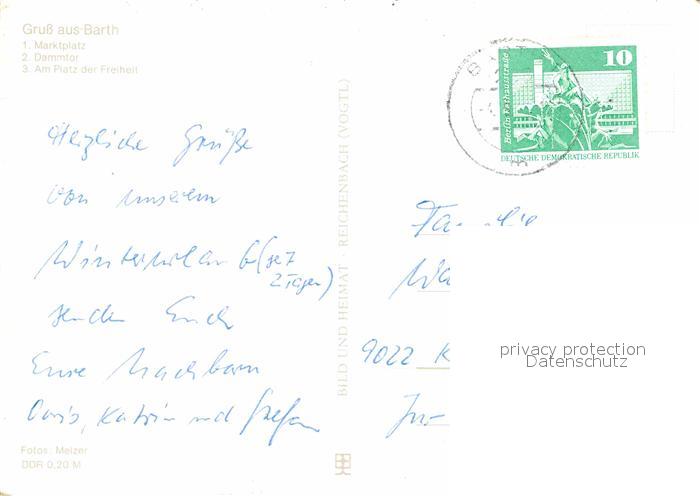 Gruß aus Barth
1. Marktplatz
2. Dammtor
3. Am Platz der Freiheit
Herzliche Grüße
von unserem
Winterurlaub (seit
2 Tagen)
senden Euch
Eure Nachbarn
Doris, Katrin und Stefan
Fotos: Melzer
DDR 0,20 M
BILD UND HEIMAT · REICHENBACH (VOGTL)
10
Berlin Rathausstraße
DEUTSCHE DEMOKRATISCHE REPUBLIK
9022 K
privacy protection
Datenschutz